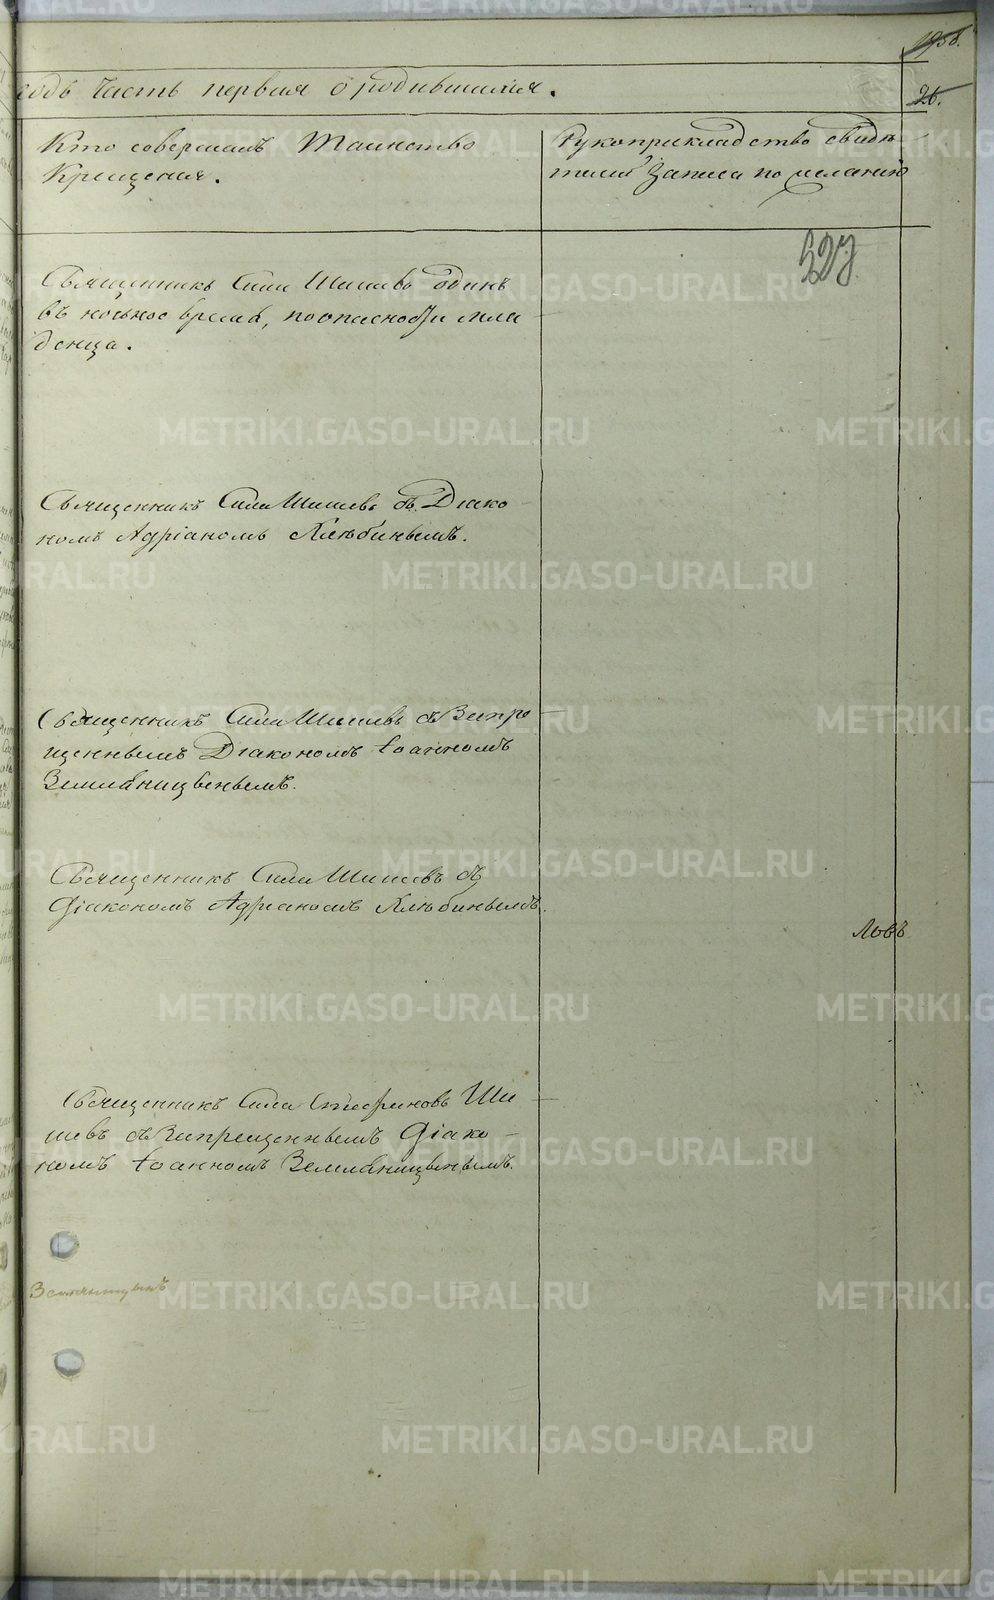 195 об.
годъ Часть первая о родившихся.
26.
Кто совершалъ Таинство
Крещения.
Рукоприкладство свидѣ
телей записа по желанію
327
Священникъ Сила Шишевъ одинъ
въ ночьное время, поопасности мла
денца.
Священникъ Сила Шишевъ съ Діако
номъ Адріаномъ Хлѣбинымъ.
Священникъ Сила Шишевъ съ Запре
щеннымъ Діакономъ Іоанномъ
Земляницынымъ.
Священникъ Сила Шишевъ съ
Діакономъ Адріаномъ Хлѣбинымъ.
Ловъ
Священникъ Сила Стефановъ Ши
шевъ съ Запрещеннымъ Діако
номъ Іоанномъ Земляницынымъ.
METRIKI.GASO-URAL.RU